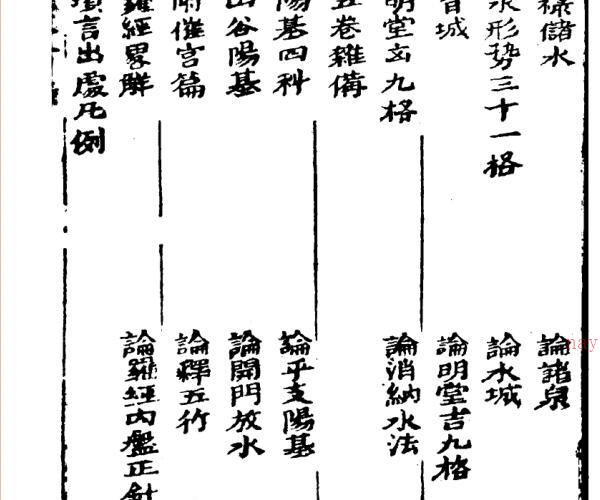 祿儲水
論諸泉
水形势三十一格
論水城
城
論明堂吉九格
明堂玄九格
論消納水法
五卷雜備
陽基四科
論平支陽基
山谷陽基
論開門放水
附催官篇
論釋五行
羅經畧解
論羅經內盤正針
言出處凡例